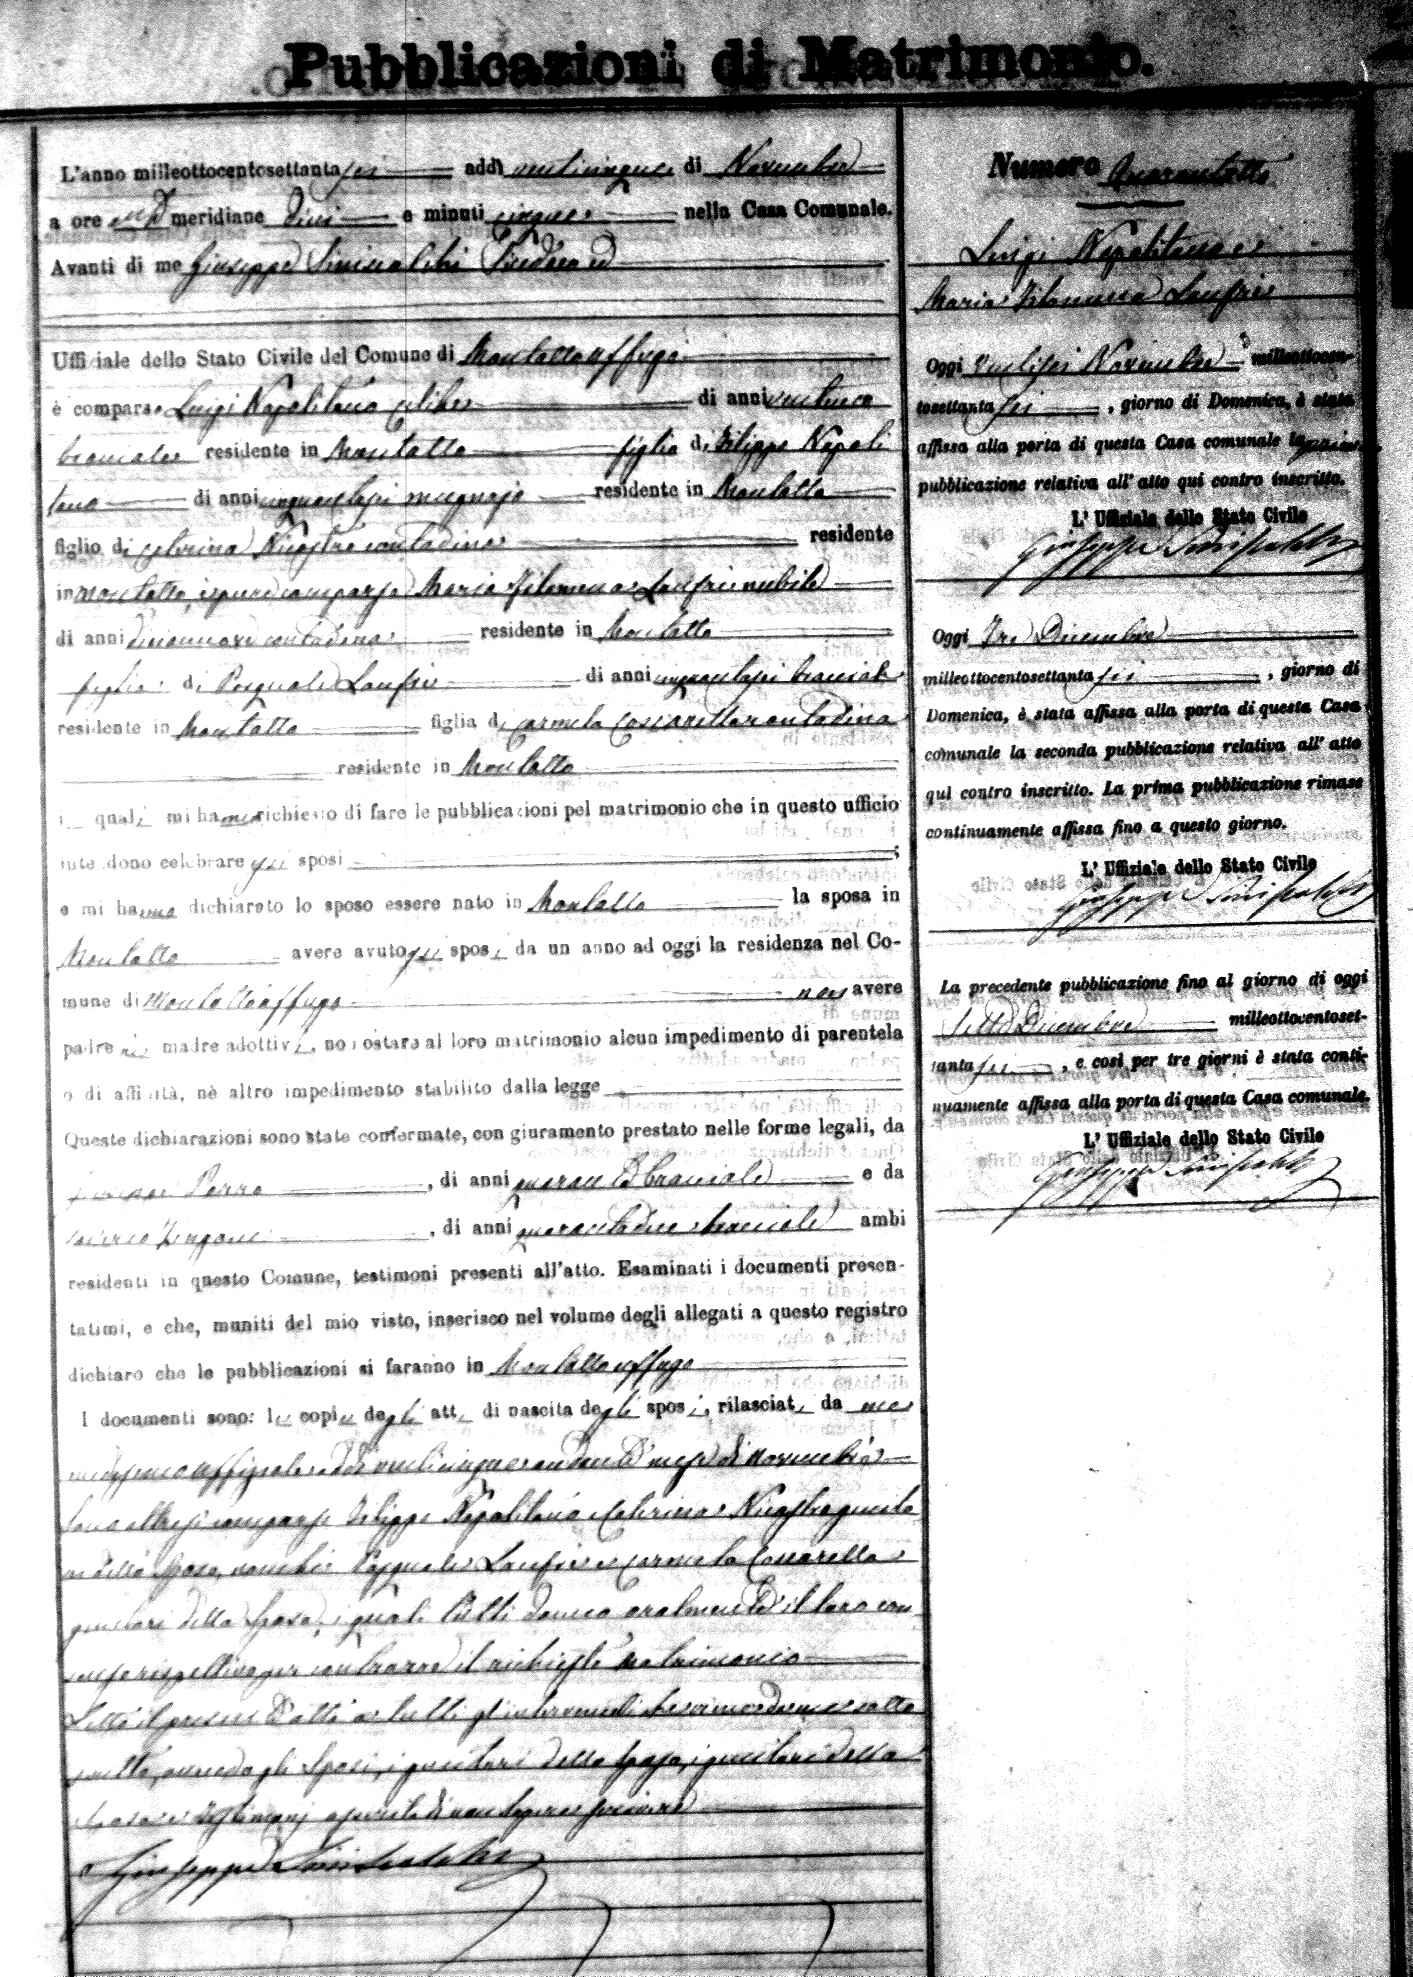 Pubblicazioni di Matrimonio.
L'anno milleottocentosettantasei addì venticinque di Novembre
a ore meridiane dieci e minuti cinque nella Casa Comunale.
Avanti di me Giuseppe Sinisalchi Sindaco
Ufficiale dello Stato Civile del Comune di Montaltouffugo
è comparso Luigi Napolitano celibe di anni ventuno
bracciale residente in Montalto figlio di Filippo Napoli
tano di anni cinquantasei mugnajo residente in Montalto
figlio di Caterina Nicastro contadina residente
in Montalto, è pure comparsa Maria Filomena Lanfrie nubile
di anni diciannove contadina residente in Montalto
figlia di Pasquale Lanfrie di anni cinquantasei bracciale
residente in Montalto figlia di Carmela Coscarella contadina
residente in Montalto
i quali mi hanno richiesto di fare le pubblicazioni pel matrimonio che in questo ufficio
intendono celebrare gli sposi ;
e mi hanno dichiarato lo sposo essere nato in Montalto la sposa in
Montalto avere avuto gli sposi da un anno ad oggi la residenza nel Co-
mune di Montaltouffugo non avere
padre nè madre adottivi, non ostare al loro matrimonio alcun impedimento di parentela
o di affinità, nè altro impedimento stabilito dalla legge
Queste dichiarazioni sono state confermate, con giuramento prestato nelle forme legali, da
Perro , di anni quaranta bracciale e da
, di anni quarantadue bracciale ambi
residenti in questo Comune, testimoni presenti all'atto. Esaminati i documenti presen-
tatimi, e che, muniti del mio visto, inserisco nel volume degli allegati a questo registro
dichiaro che le pubblicazioni si faranno in Montaltouffugo
I documenti sono: le copie degli atti di nascita degli sposi, rilasciate da me
medesimo uffiziale addì venticinque andante mese di Novembre
Sono altresì comparsi Filippo Napolitano e Caterina Nicastro genito
ri dello sposo, nonchè Pasquale Lanfrie e Carmela Coscarella
genitori della sposa, i quali tutti danno oralmente il loro con
senso rispettivo per contrarre il richiesto matrimonio
Letto il presente atto a tutti gl'intervenuti
gli sposi, i genitori dello sposo, i genitori della
sposa e testimonj asserito di non sapere scrivere
Giuseppe Sinisalchi
Numero Quarantotto
Luigi Napolitano e
Maria Filomena Lanfrie
Oggi ventisei Novembre milleottocen-
tosettantasei , giorno di Domenica, è stata
affissa alla porta di questa Casa comunale la prima
pubblicazione relativa all' atto qui contro inscritto.
L' Uffiziale dello Stato Civile
Giuseppe Sinisalchi
Oggi Tre Dicembre
milleottocentosettantasei , giorno di
Domenica, è stata affissa alla porta di questa Casa
comunale la seconda pubblicazione relativa all' atto
qui contro inscritto. La prima pubblicazione rimase
continuamente affissa fino a questo giorno.
L' Uffiziale dello Stato Civile
Giuseppe Sinisalchi
La precedente pubblicazione fino al giorno di oggi
Sette Dicembre milleottocentoset-
tantasei , e così per tre giorni è stata conti-
nuamente affissa alla porta di questa Casa comunale.
L' Uffiziale dello Stato Civile
Giuseppe Sinisalchi